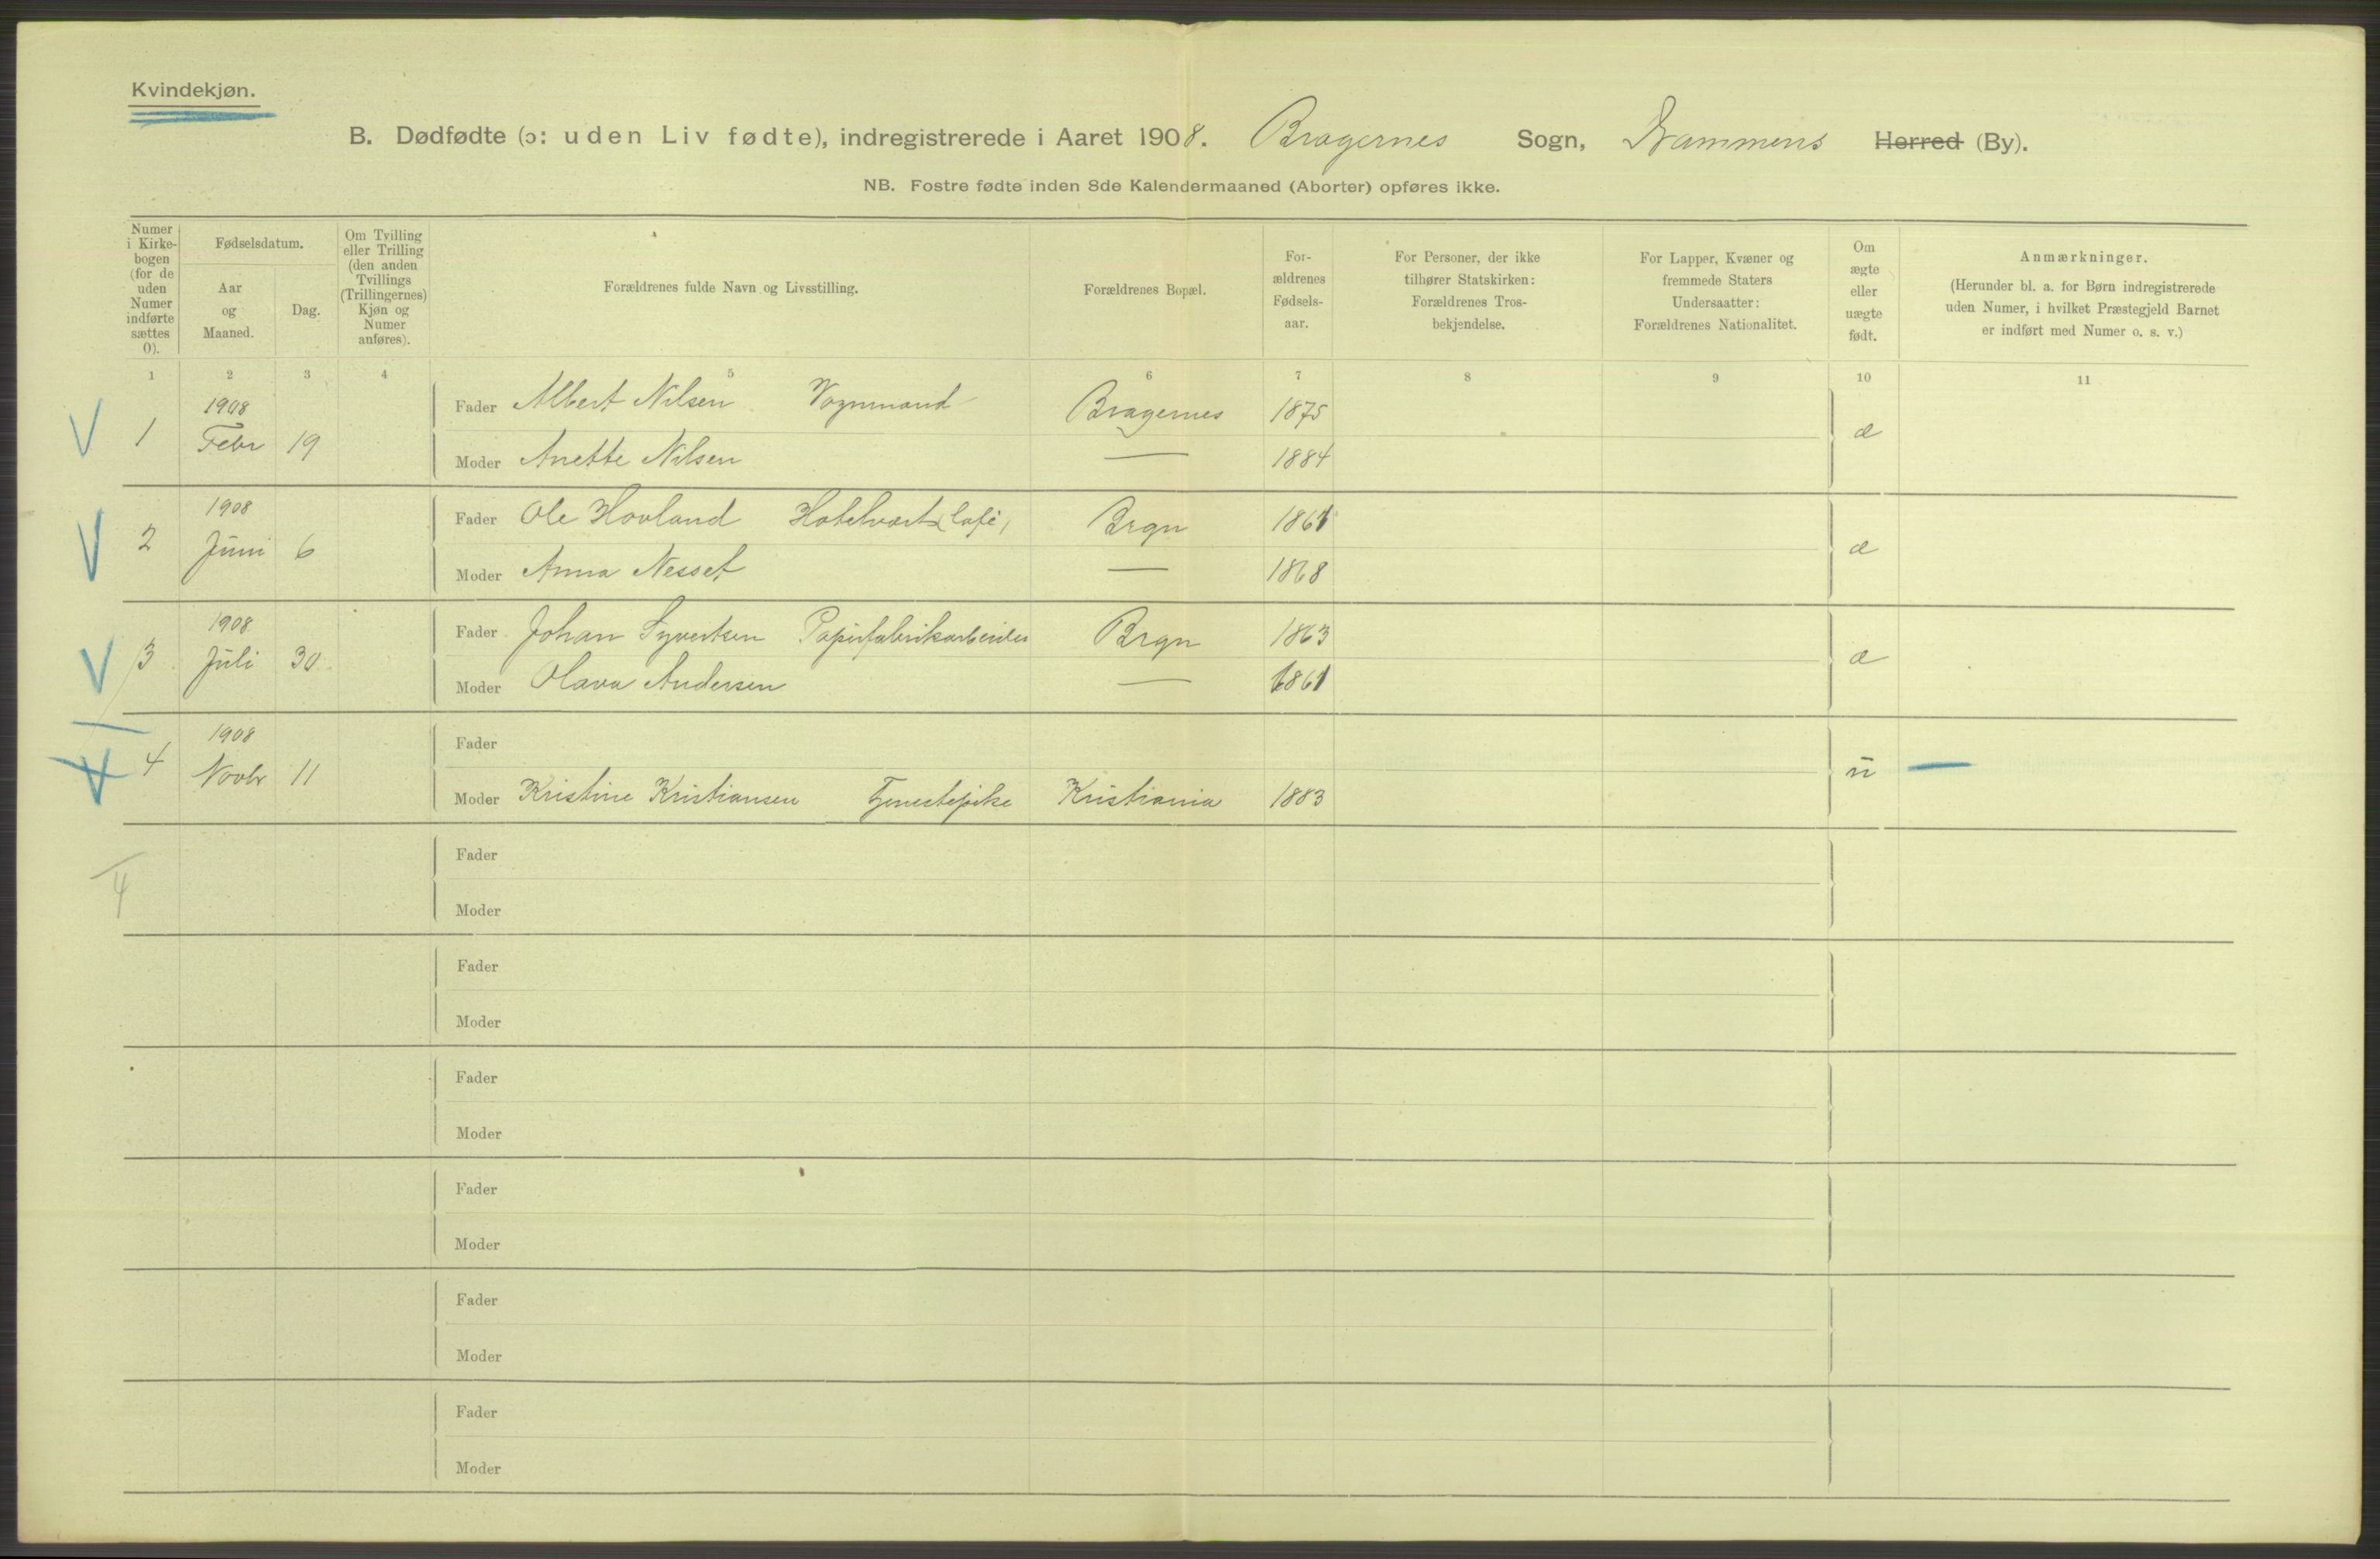 Kvindekjøn.
B. Dødfødte (ɔ: uden Liv fødte), indregistrerede i Aaret 1908. Bragernes Sogn, Drammens Herred (By).
NB. Fostre fødte inden 8de Kalendermaaned (Aborter) opføres ikke.
Numer i Kirkebogen (for de uden Numer indførte sættes 0).
Fødselsdatum.
Aar og Maaned.
Dag.
Om Tvilling eller Trilling (den anden Tvillings (Trillingernes) Kjøn og Numer anføres).
Forældrenes fulde Navn og Livsstilling.
Forældrenes Bopæl.
Forældrenes Fødselsaar.
For Personer, der ikke tilhører Statskirken: Forældrenes Trosbekjendelse.
For Lapper, Kvæner og fremmede Staters Undersaatter: Forældrenes Nationalitet.
Om ægte eller uægte født.
Anmærkninger.
(Herunder bl. a. for Børn indregistrerede uden Numer, i hvilket Præstegjeld Barnet er indført med Numer o. s. v.)
1 2 3 4 5 6 7 8 9 10 11
1908
Fader Albert Nilsen Vognmand Bragernes 1875
1 Febr 19 æ
Moder Anette Nilsen — 1884
1908
Fader Ole Hovland Hotelvært (Café) Brgn 1861
2 Juni 6 æ
Moder Anna Nesset — 1868
1908
Fader Johan Syvertsen Papirfabrikarbeider Brgn 1863
3 Juli 30 æ
Moder Olava Andersen — 1861
1908
Fader
4 Novbr 11 u —
Moder Kristine Kristiansen Tjenestepike Kristiania 1883
Fader
4
Moder
Fader
Moder
Fader
Moder
Fader
Moder
Fader
Moder
Fader
Moder